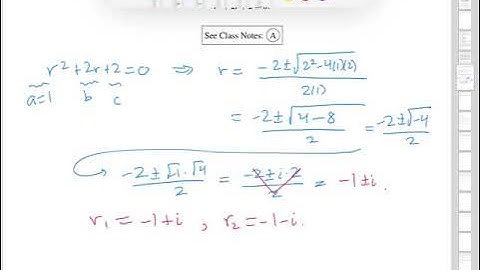 See Class Notes: A
r² + 2r + 2 = 0 ⇒ r = (-2 ± √(2² - 4(1)(2))) / 2(1)
a=1 b c
= (-2 ± √(4 - 8)) / 2 = (-2 ± √-4) / 2
(-2 ± √-1 · √4) / 2 = (-2 ± i·2) / 2 = -1 ± i.
r₁ = -1 + i , r₂ = -1 - i.